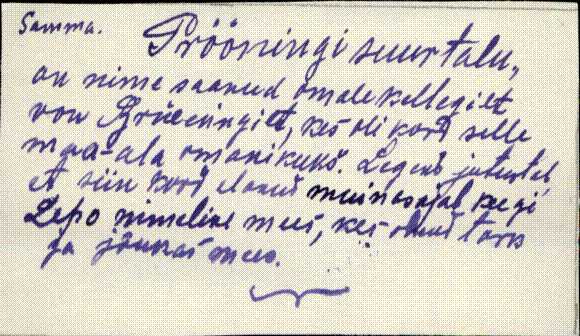 Samma.
Prööningi suurtalu,
on nime saanud omale kellegilt
von Grüeningilt, kes oli kord selle
maa-ala omanikuks. Legend jutustab
et siin kord elanud muinasajal keegi
Lepo nimeline mees, kes olnud tark
ja jõukas mees.